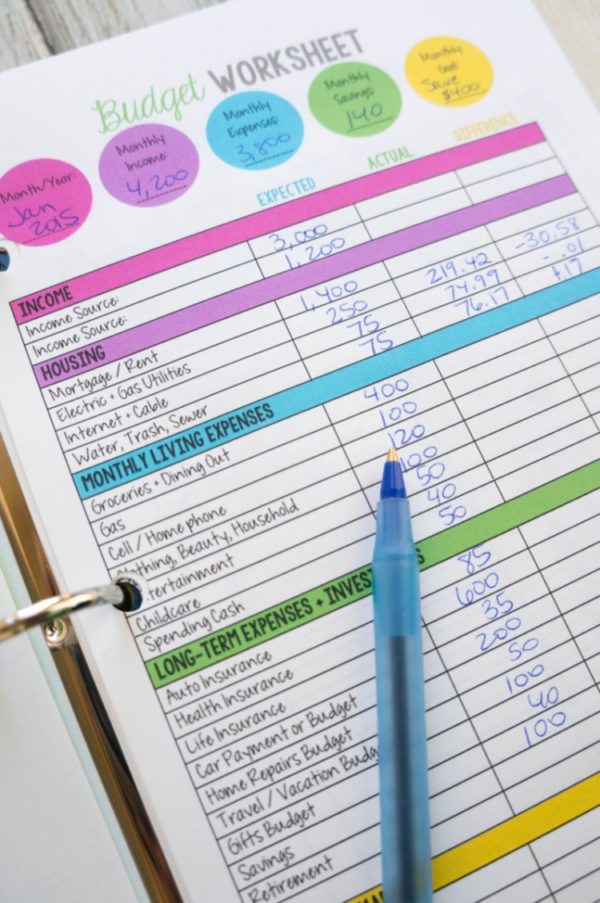 Budget WORKSHEET
Month/Year:
Jan
2015
Monthly
Income:
4,200
Monthly
Expenses:
3,800
Monthly
Savings:
140
Monthly
Goal
Save
$400
EXPECTED ACTUAL DIFFERENCE
INCOME
Income Source: 3,000
Income Source: 1,200
HOUSING
Mortgage / Rent 1,400
Electric + Gas Utilities 250 219.42 -30.58
Internet + Cable 75 74.99 -.01
Water, Trash, Sewer 75 76.17
MONTHLY LIVING EXPENSES
Groceries + Dining Out 400
Gas 100
Cell / Home phone 120
thing, Beauty, Household 100
tertainment 50
Childcare 40
Spending Cash 50
LONG-TERM EXPENSES + INVES
Auto Insurance 85
Health Insurance 600
Life Insurance 35
Car Payment or Budget 200
Home Repairs Budget 50
Travel / Vacation Budg 100
Gifts Budget 40
Savings 100
Retirement